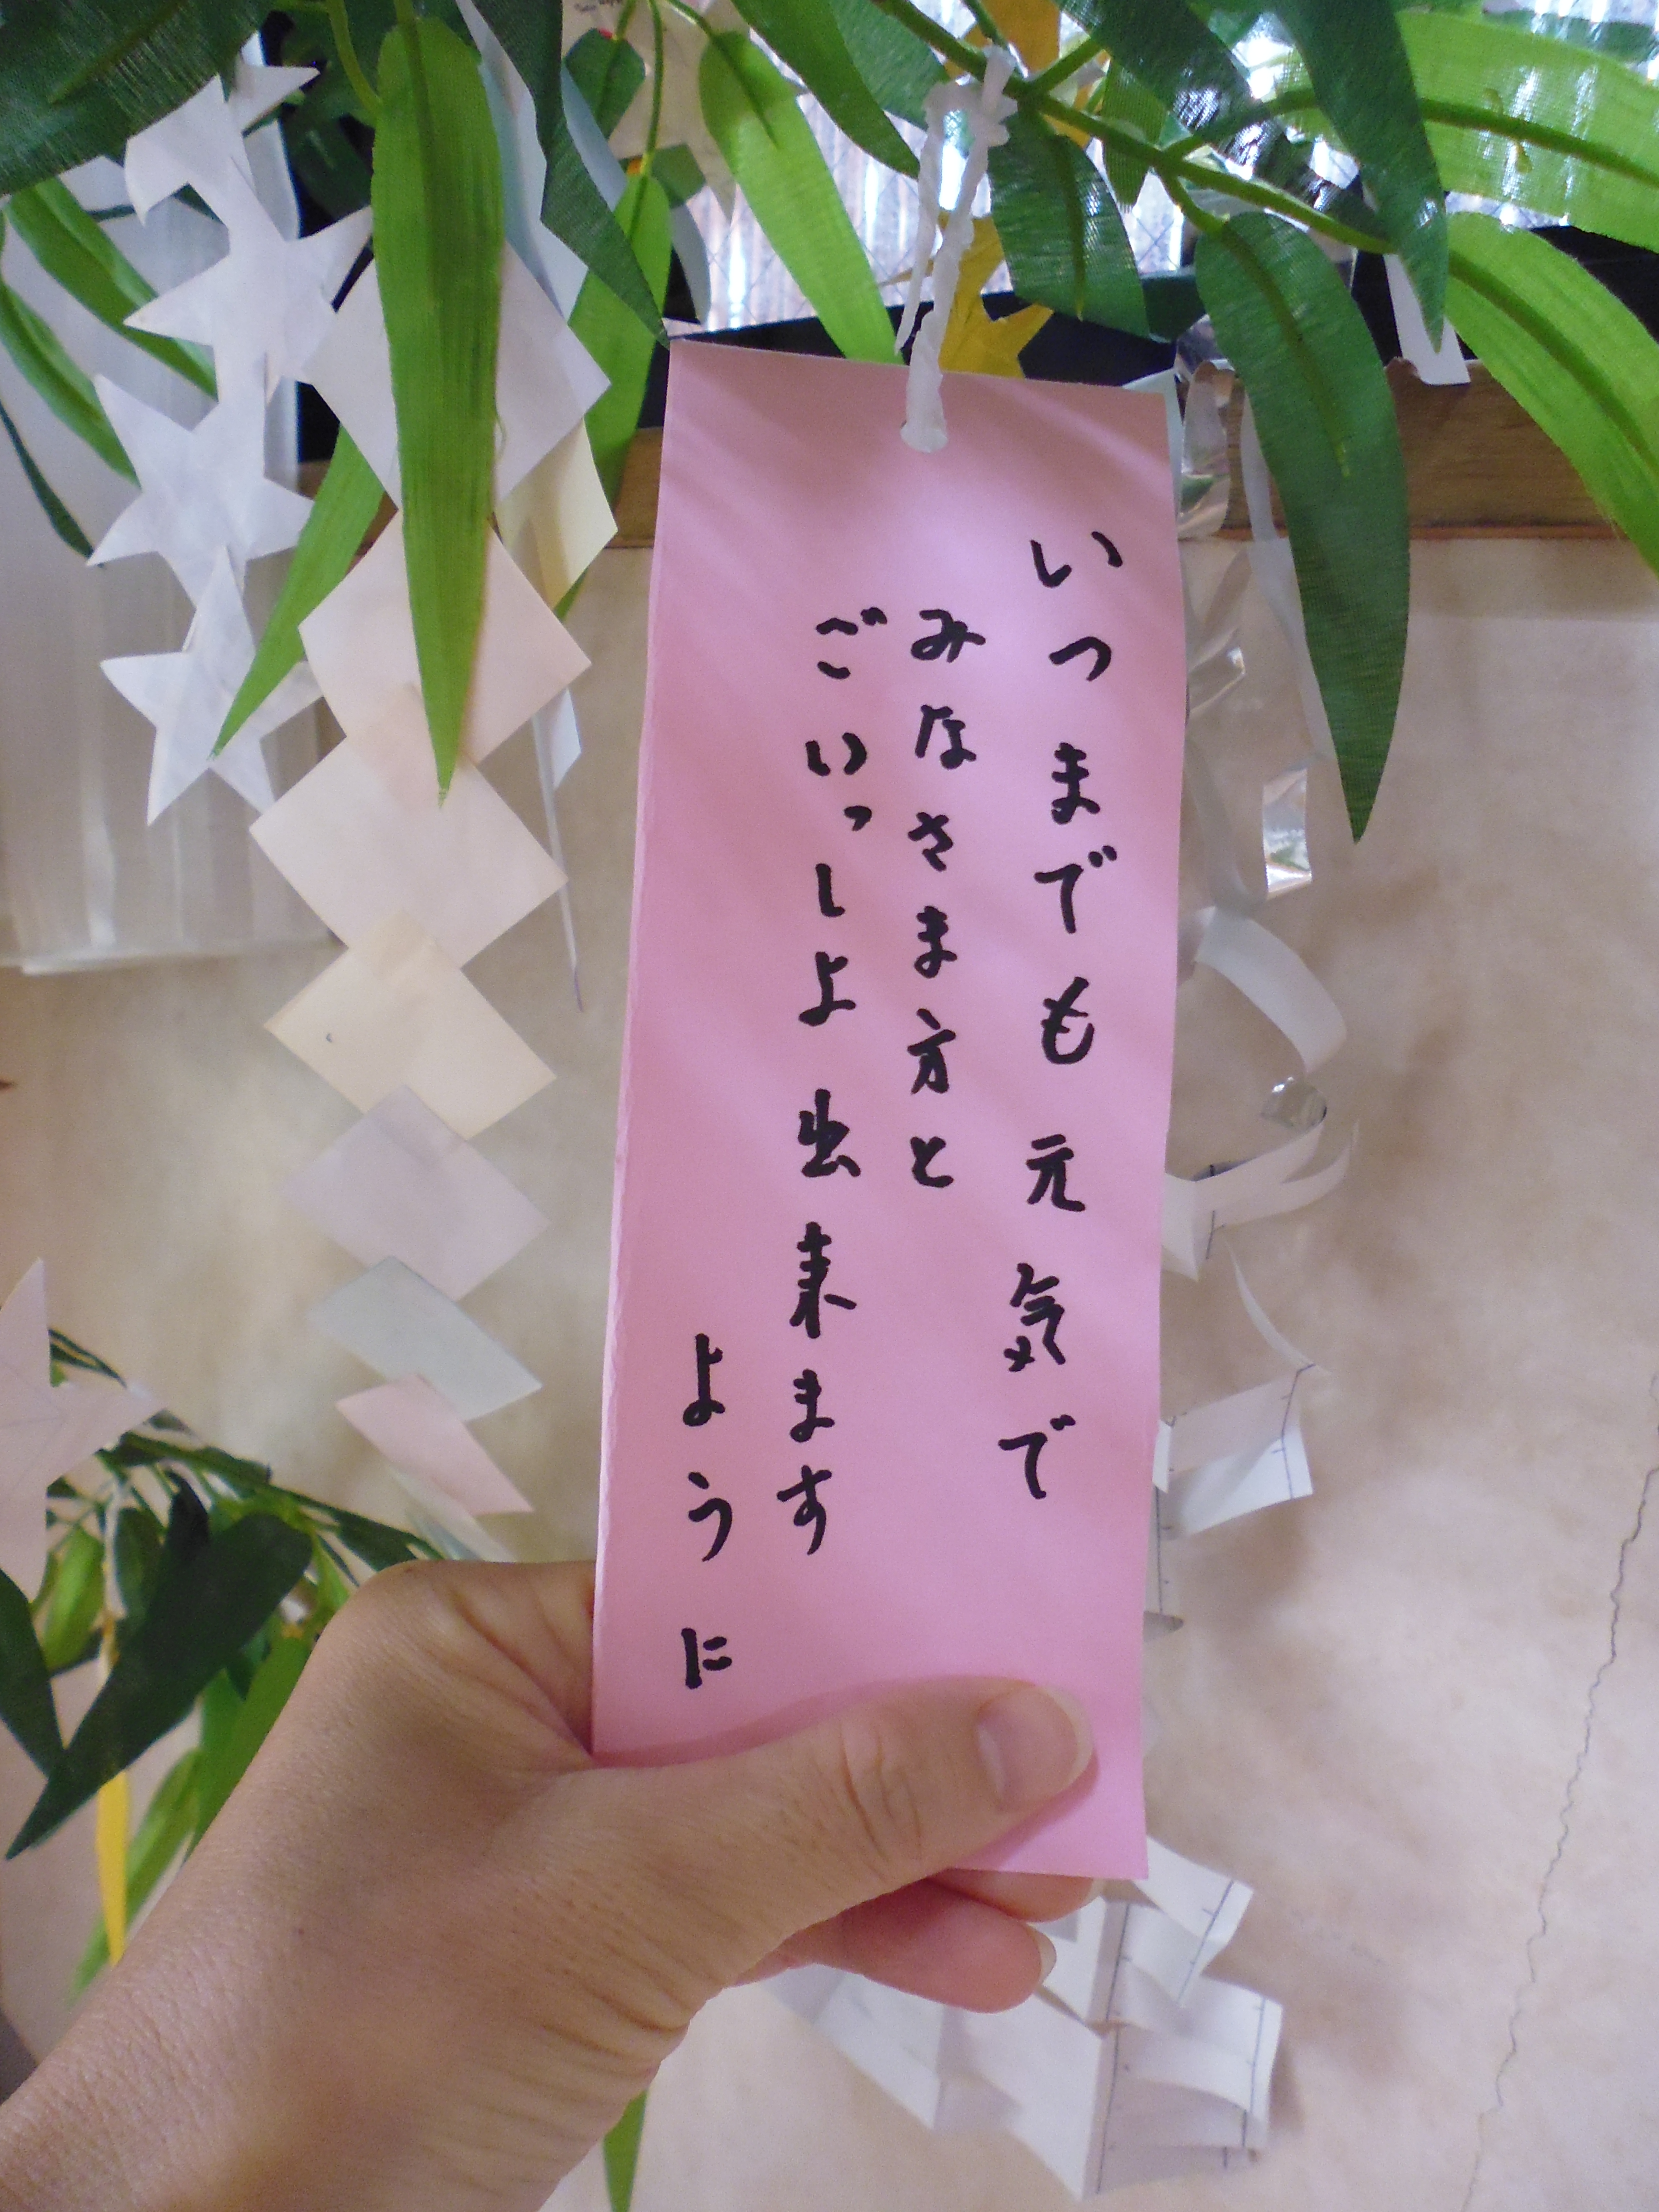 いつまでも元気で
みなさま方と
ごいっしよ出来ます
ように